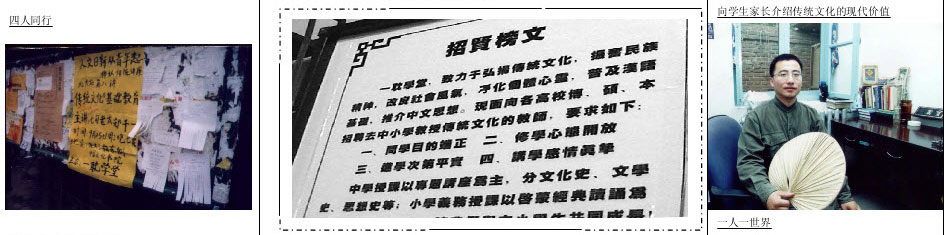 四人同行
传统文化基础教育
主讲
一耽学堂
招賢榜文
一耽學堂，致力于弘揚傳統文化，振奮民族
精神，改良社會風氣，淨化個體心靈，普及漢語
基礎，推介中文思想。現面向各高校博、碩、本
招聘去中小學教授傳統文化的教師，要求如下：
一、問學目的矯正 二、修學心態開放
三、進學次第平實 四、講學感情真摯
中學授課以專題講座爲主，分文化史、文學
史、思想史等；小學義務授課以啓蒙經典讀誦爲
向学生家长介绍传统文化的现代价值
一人一世界